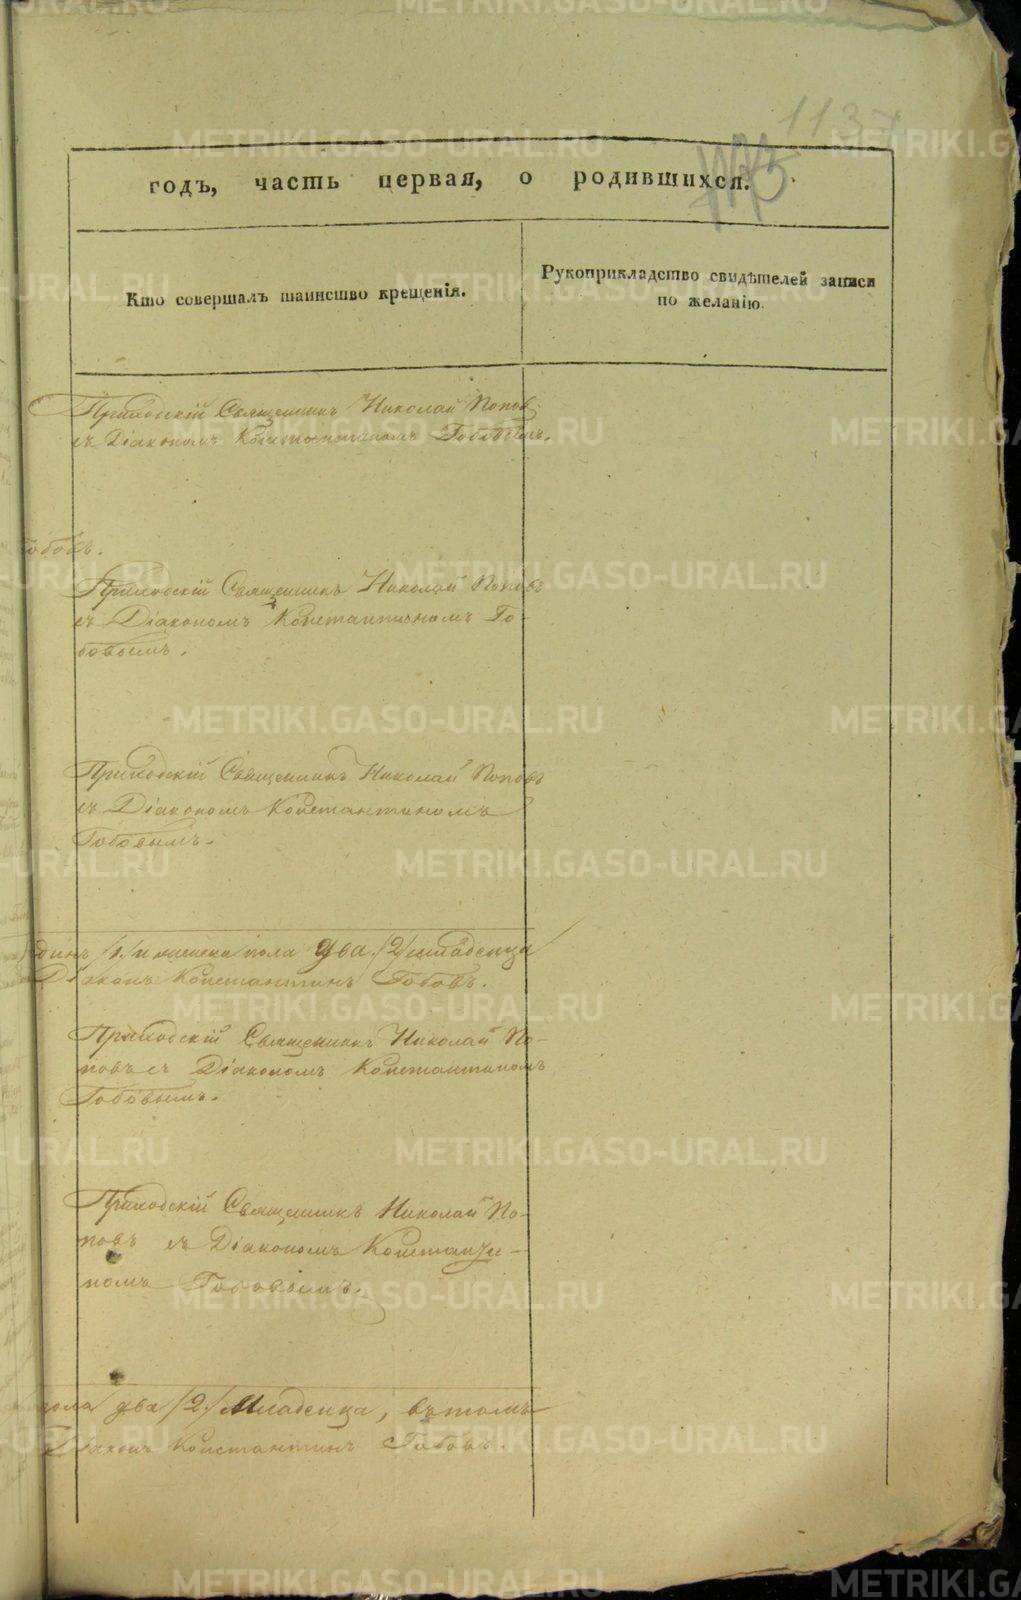 1137
годъ, часть первая, о родившихся.
Кто совершалъ таинство крещенія.
Рукоприкладство свидѣтелей записи
по желанію.
Приходскій Священникъ Николай Попов
съ Діакономъ Константиномъ Гобовымъ.
Гобовъ.
Приходскій Священникъ Николай Поповъ
съ Діакономъ Константиномъ Го-
бовымъ.
Приходскій Священникъ Николай Поповъ
съ Діакономъ Константиномъ
Гобовымъ.
динъ /1./ и женска пола два /2/ младенца
Діаконъ Константинъ Гобовъ.
Приходскій Священникъ Николай По-
повъ съ Діакономъ Константиномъ
Гобовымъ.
Приходскій Священникъ Николай По-
повъ съ Діакономъ Константи-
номъ Гобовымъ.
пола два /2./ Младенца, вътомъ
Діаконъ Константинъ Гобовъ.
METRIKI.GASO-URAL.RU